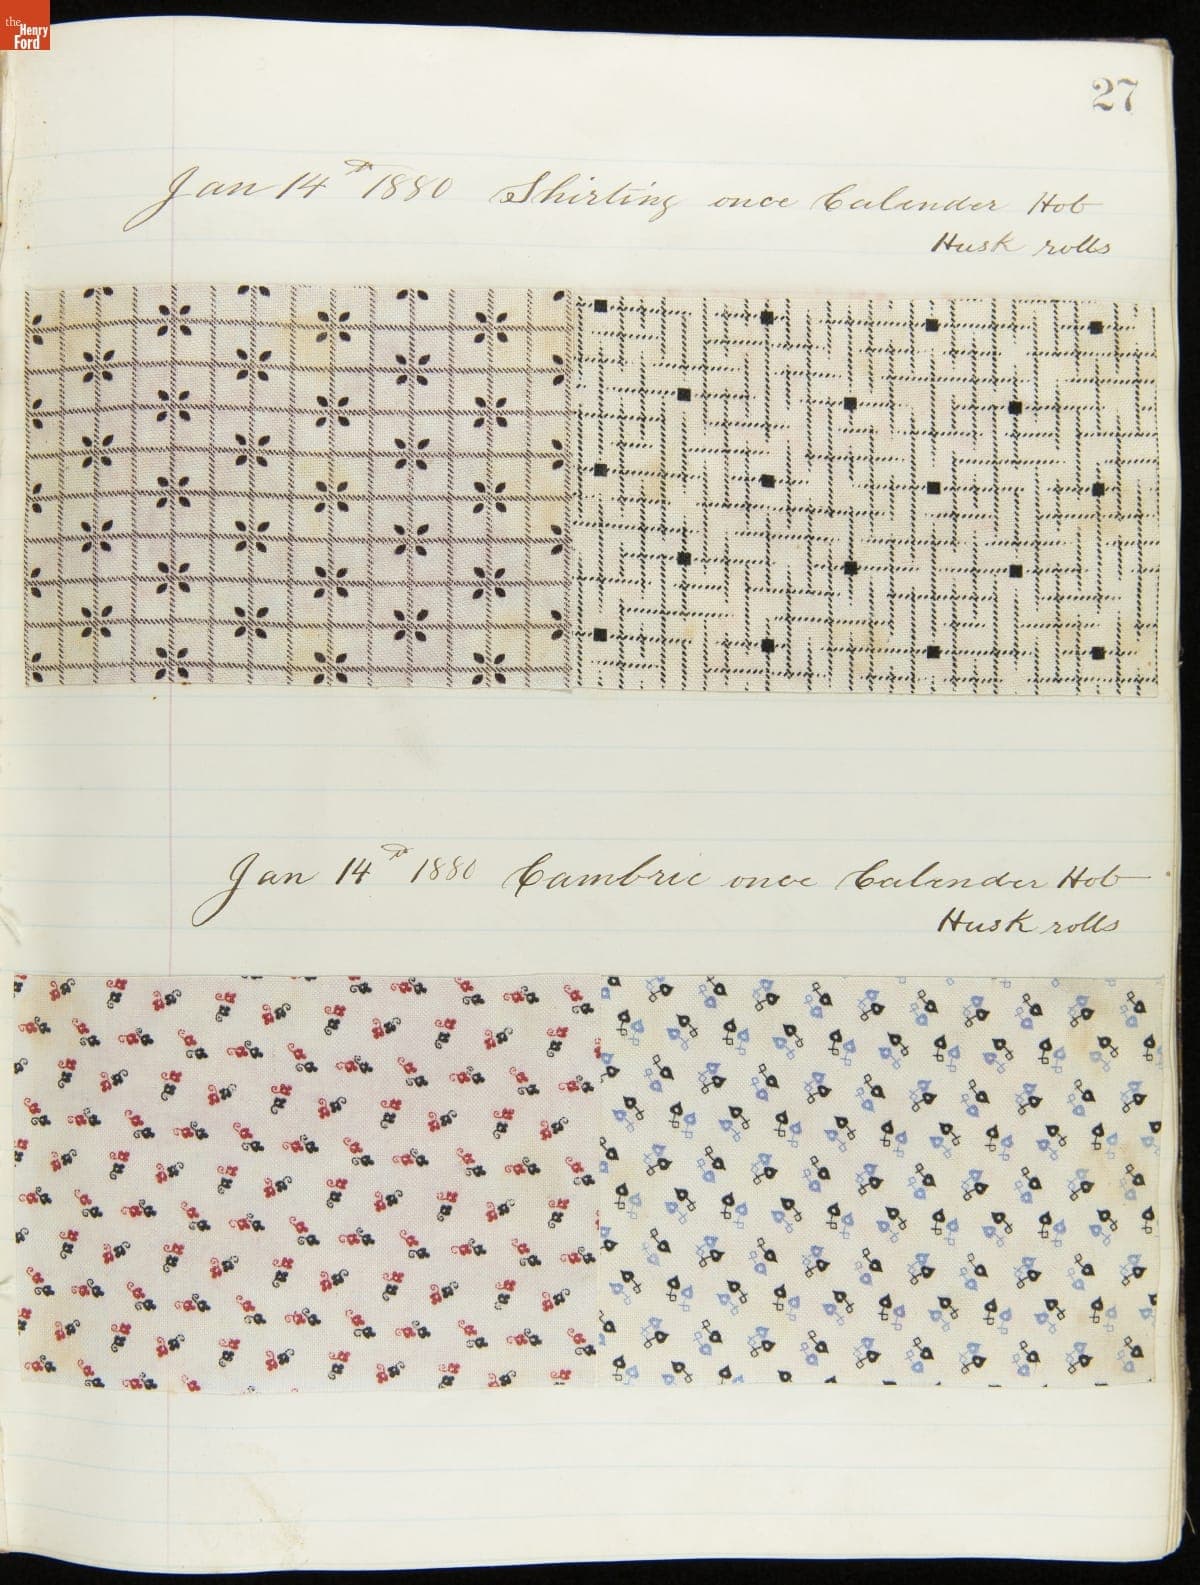 the
Henry
Ford
27
Jan 14th 1880 Shirting once Calender Hot
Husk rolls
Jan 14th 1880 Cambric once Calender Hot
Husk rolls